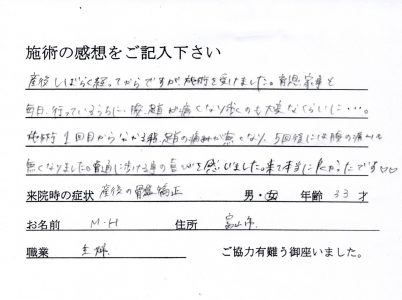 施術の感想をご記入下さい
産後しばらく経ってからですが施術を受けました。育児、家事と
毎日、行っているうちに…腰、足が痛くなり歩くのも大変なくらいに…。
施術1回目から 足の痛みが無くなり、5回目には腰の痛みも
無くなりました。普通に歩ける事の喜びを感じました。来て本当に良かったです♡♡
来院時の症状 産後の骨盤矯正 男・女 年齢 33 才
お名前 M・H 住所 富山市
職業 主婦 ご協力有難う御座いました。